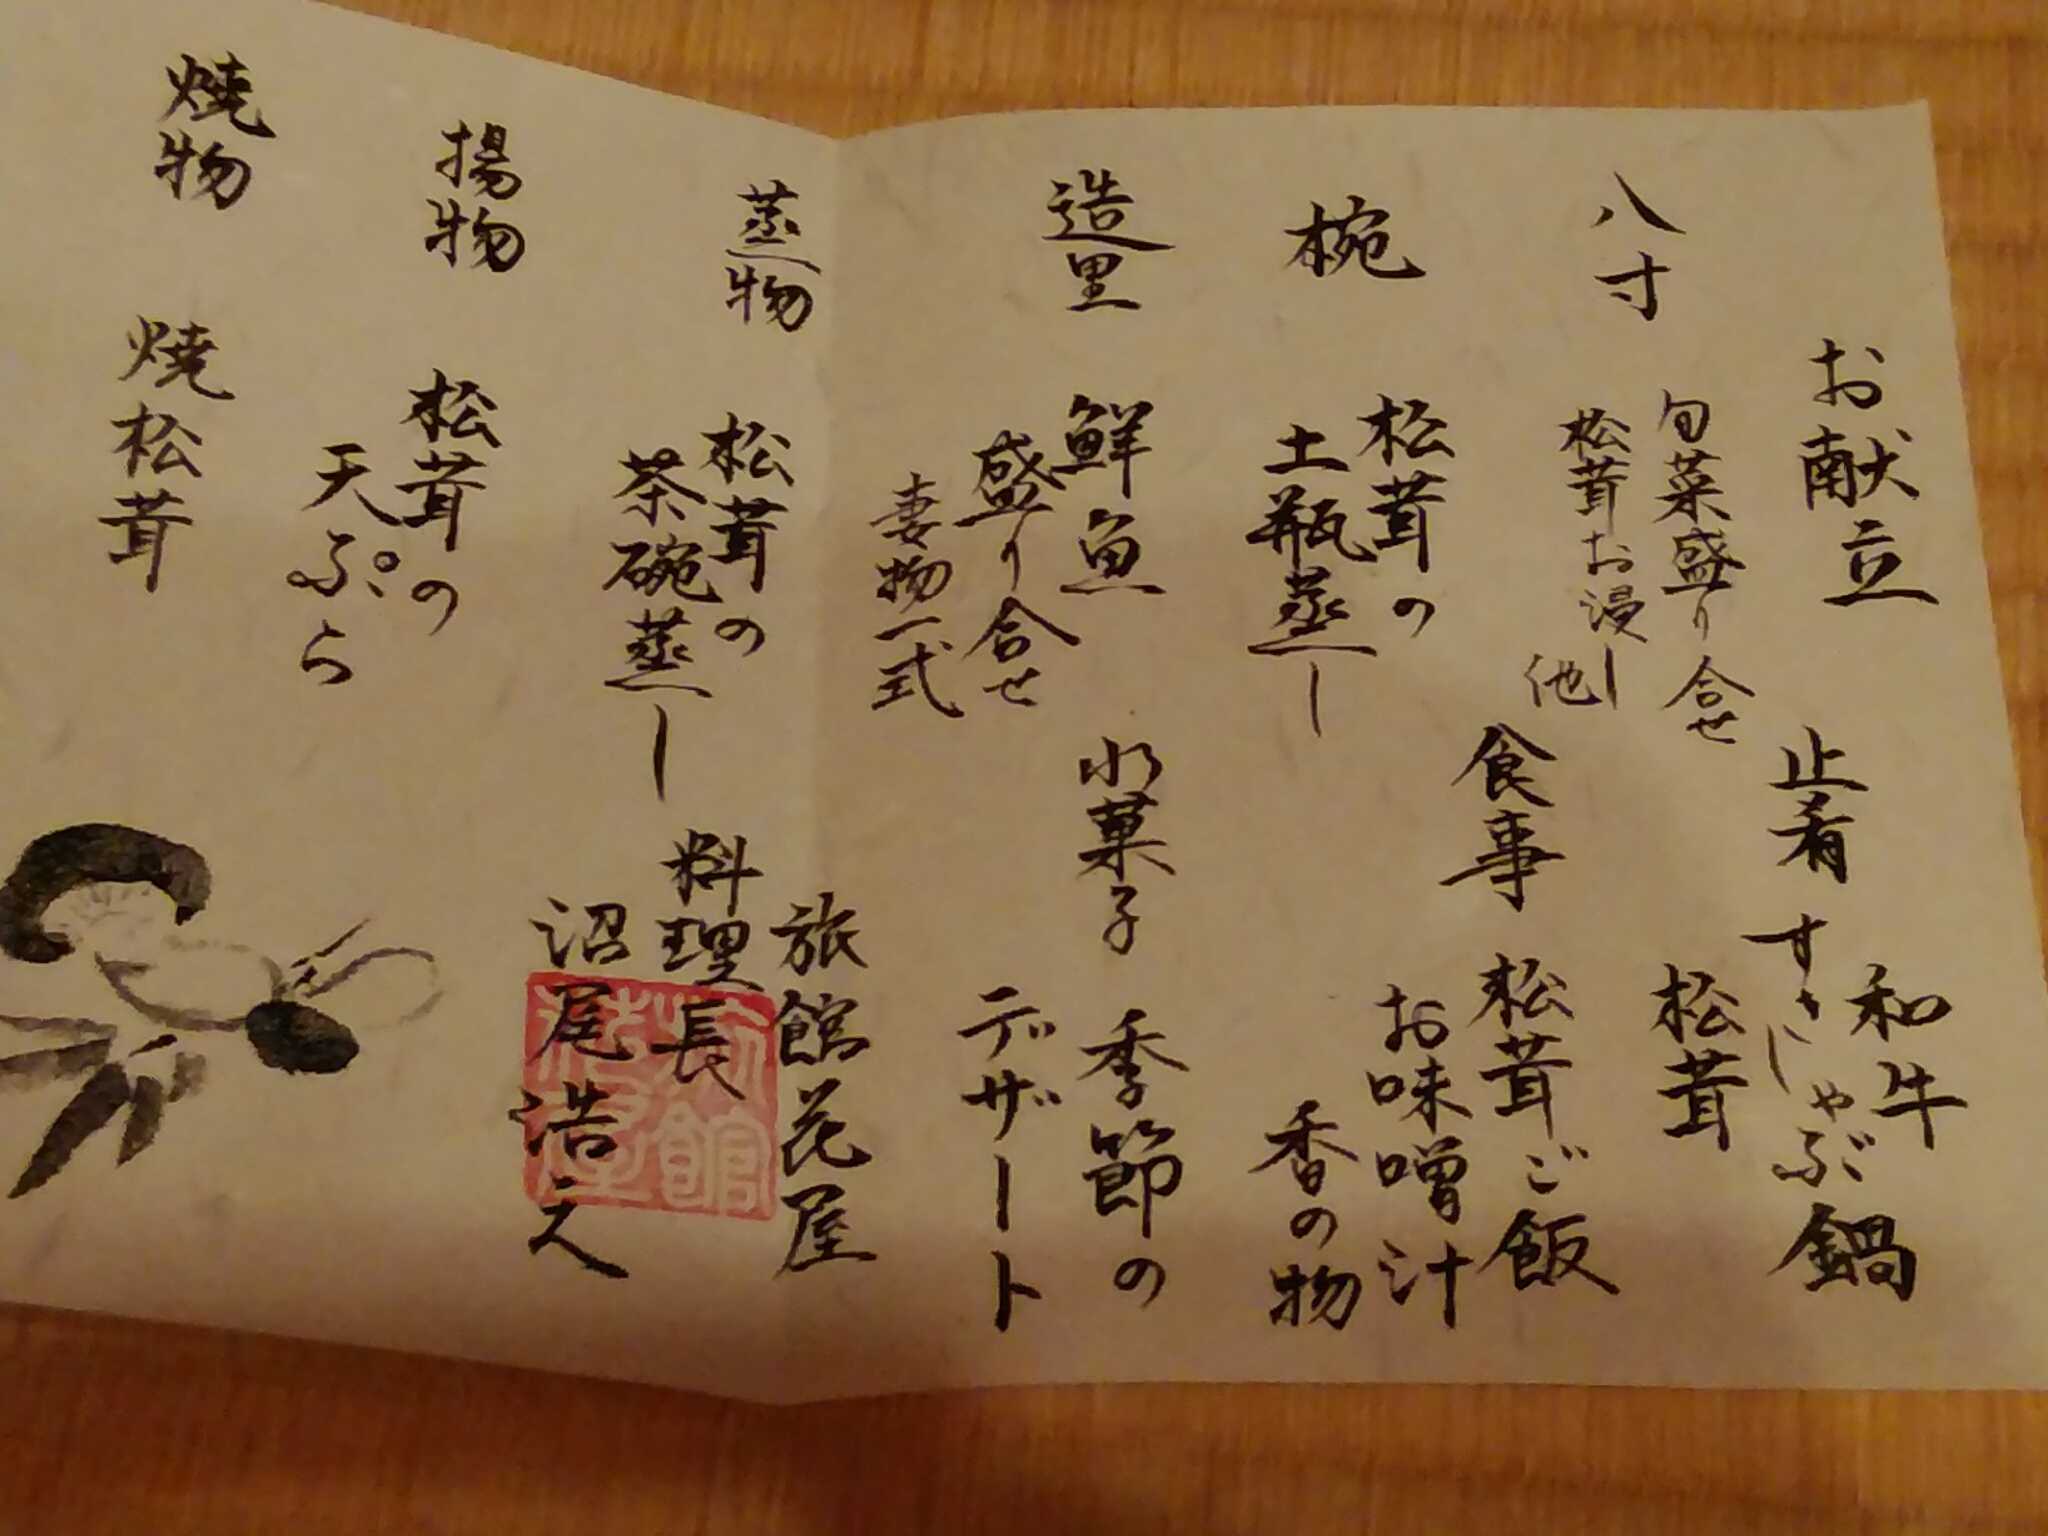 お献立
八寸
旬菜盛り合せ
松茸お浸し
他
椀
松茸の
土瓶蒸し
造里
鮮魚
盛り合せ
妻物一式
蒸物
松茸の
茶碗蒸し
揚物
松茸の
天ぷら
焼物
焼松茸
止肴
和牛
すきしゃぶ鍋
松茸
食事
松茸ご飯
お味噌汁
香の物
水菓子
季節の
デザート
旅館花屋
料理長
沼尾浩之